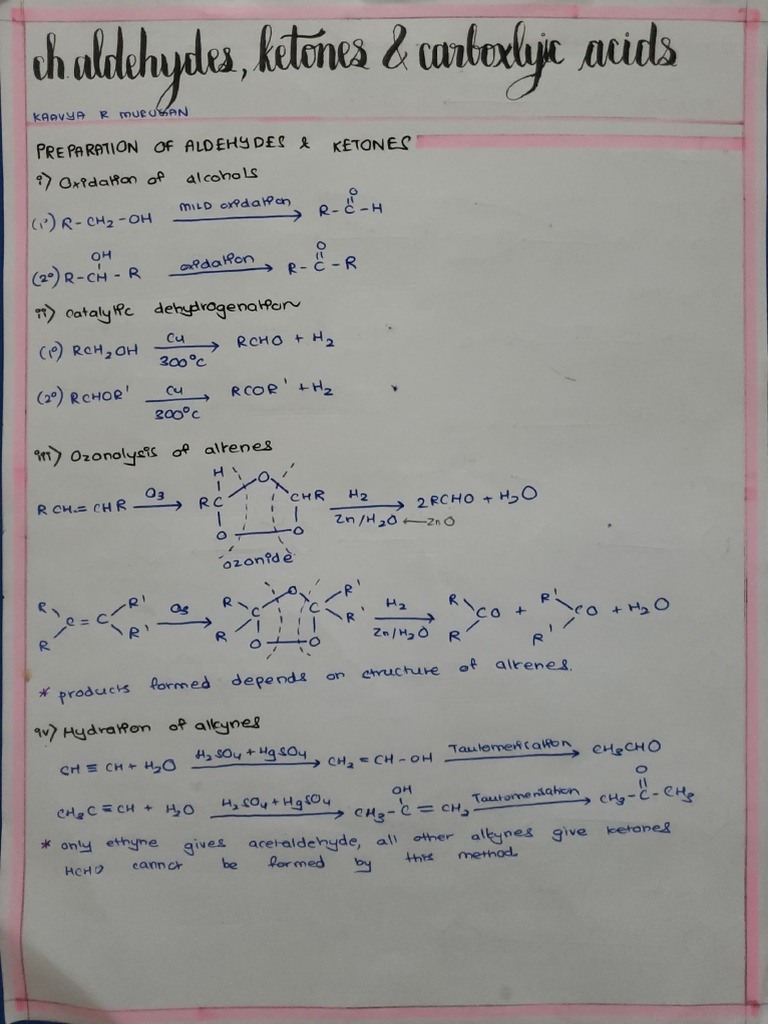 ch. aldehydes, ketones & carboxlyic acids
KAAVYA R MURUGAN
PREPARATION OF ALDEHYDES & KETONES
i) Oxidation of alcohols
(1°) R-CH2-OH MILD oxidation → R-C-H
O
||
OH
(2°) R-CH-R oxidation → R-C-R
O
||
ii) catalytic dehydrogenation
(1°) RCH2OH Cu 300°C → RCHO + H2
(2°) RCHOR' Cu 300°C → RCOR' + H2
iii) Ozonolysis of alkenes
RCH=CHR O3 → H RC O CHR O O H2 Zn/H2O ← ZnO → 2RCHO + H2O
ozonide
R R C=C R' R' O3 → R R C O C R' R' O O H2 Zn/H2O → R R CO + R' R' CO + H2O
* products formed depends on structure of alkenes.
iv) Hydration of alkynes
CH≡CH + H2O H2SO4 + HgSO4 → CH2=CH-OH Tautomerisation → CH3CHO
OH O ||
CH3C≡CH + H2O H2SO4 + HgSO4 → CH3-C=CH2 Tautomerisation → CH3-C-CH3
* only ethyne gives acetaldehyde, all other alkynes give ketones
HCHO cannot be formed by this method